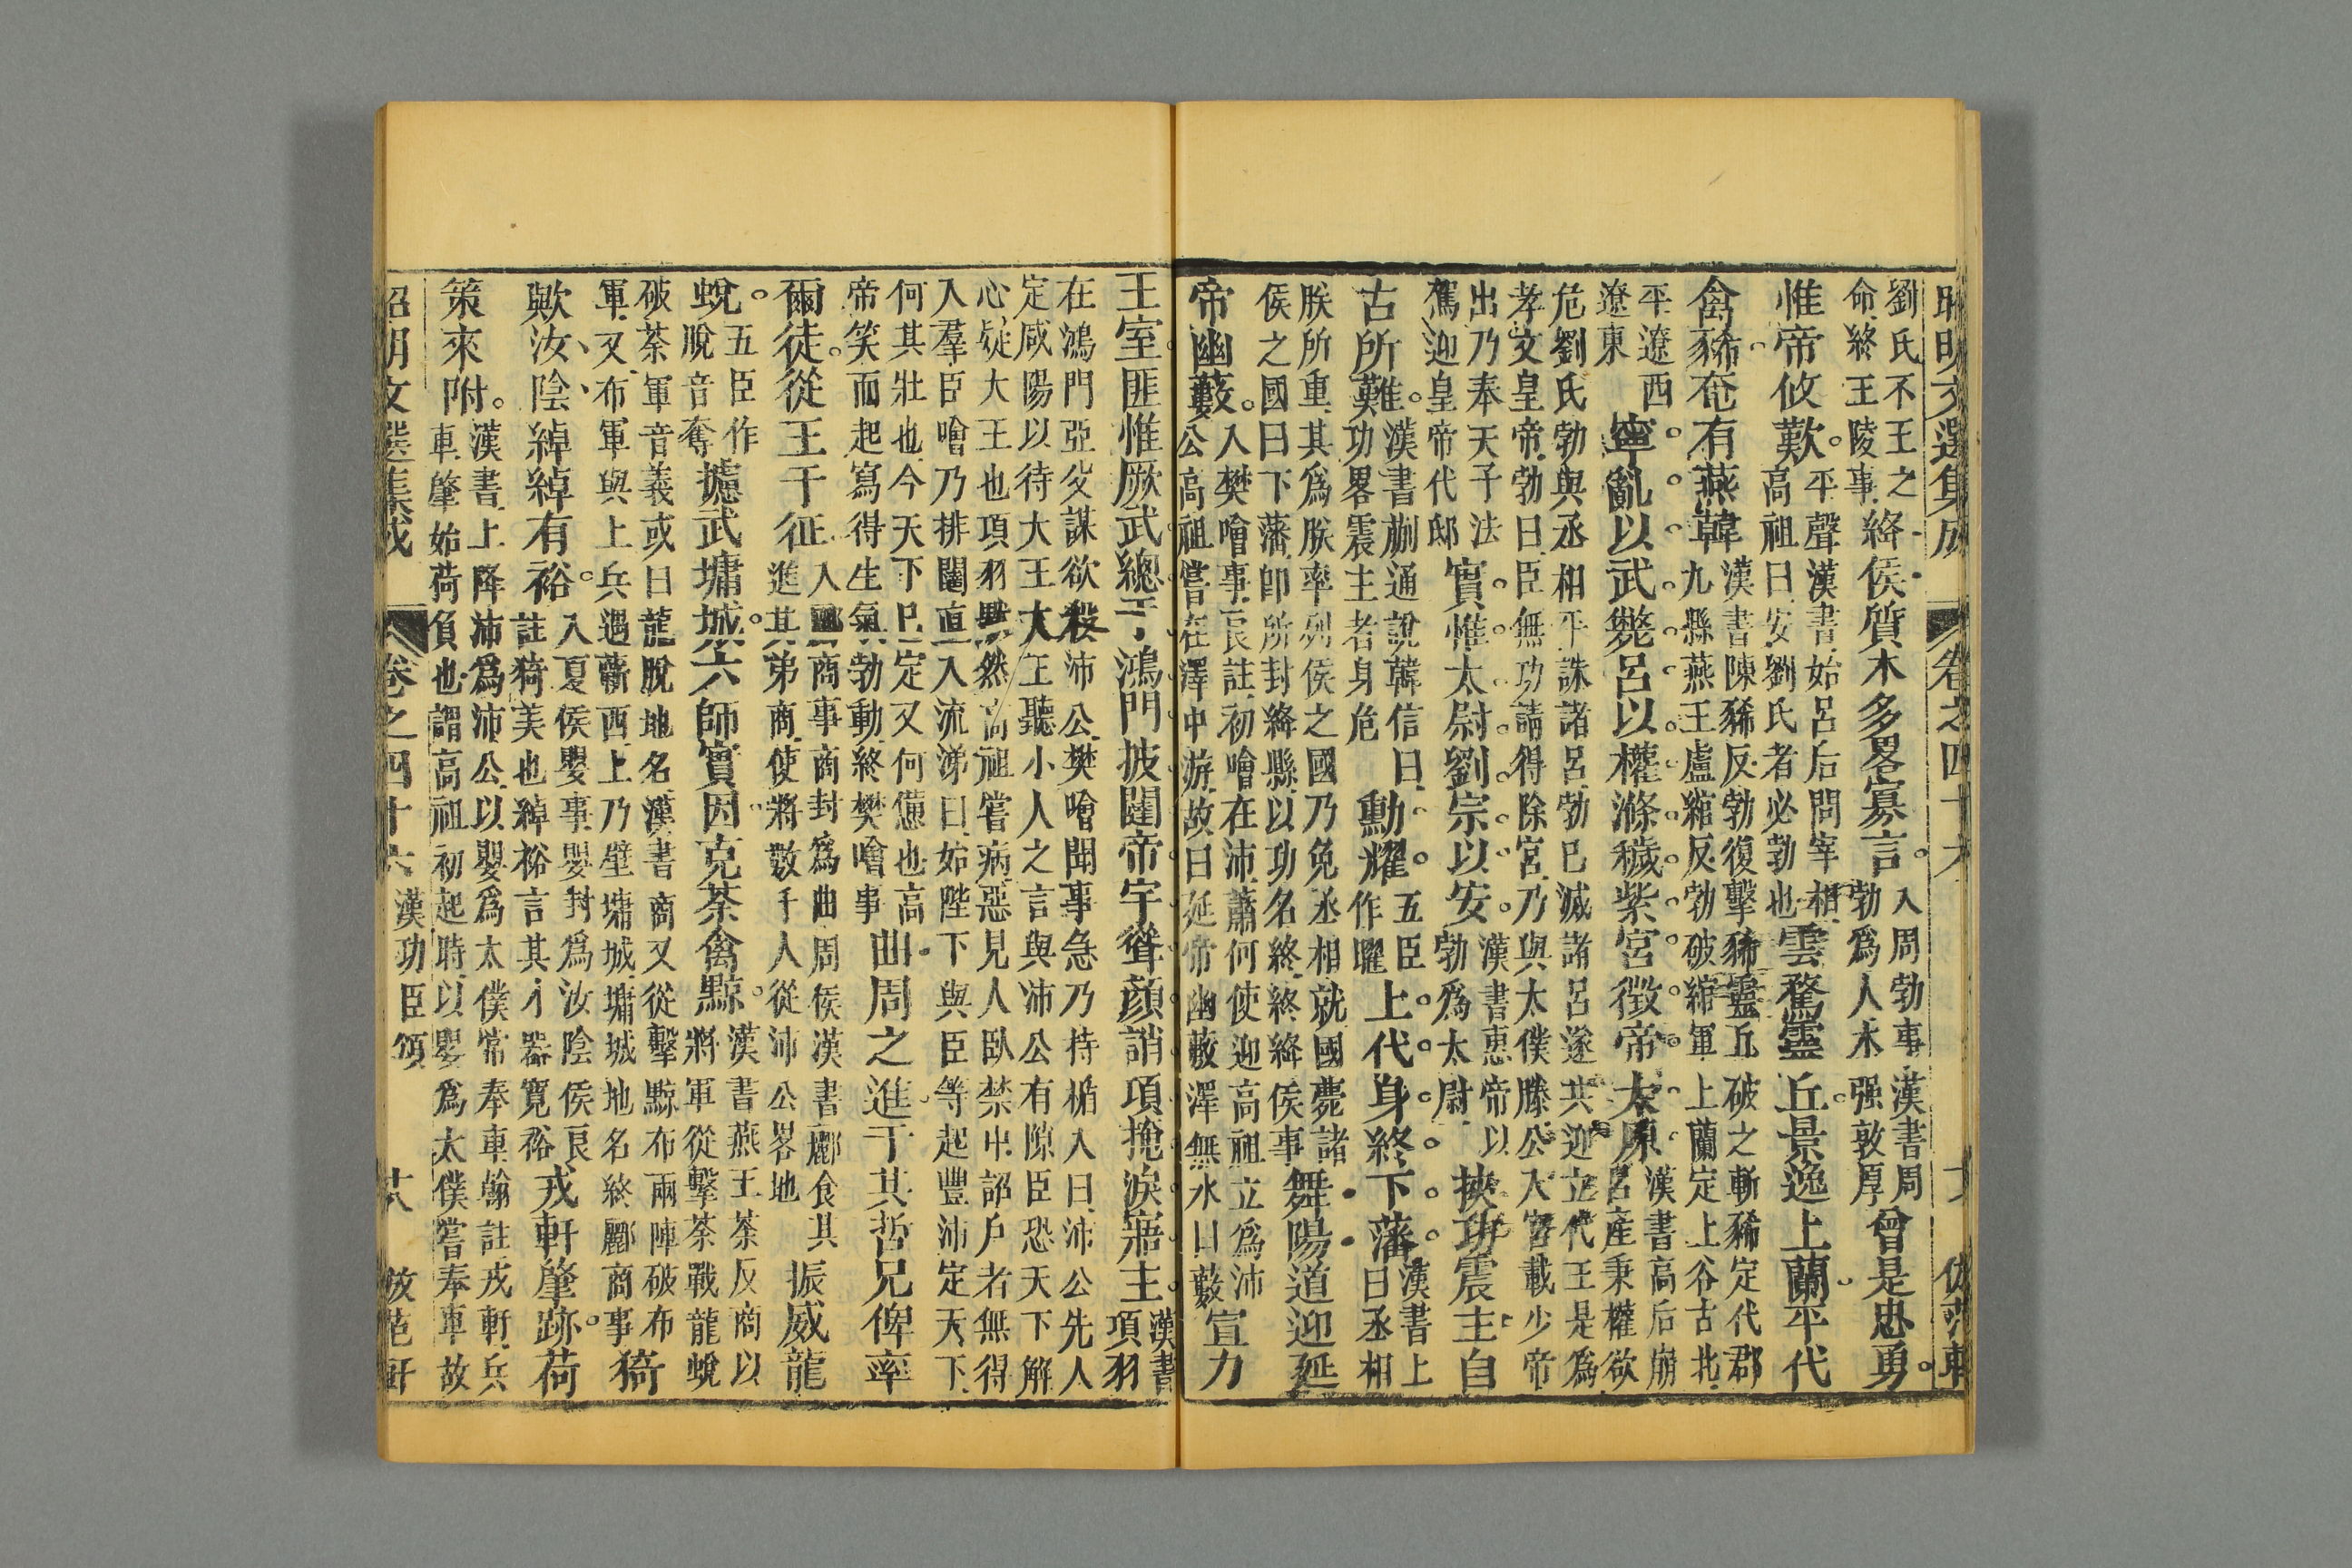 昭明文選集成 卷之四十六
劉氏不王之
命終王陵事絳侯質木多畧寡言入周勃事漢書周
勃爲人木强敦厚曾是忠勇
惟帝攸歎平聲漢書始呂后問宰相
高祖曰安劉氏者必勃也雲騖靈丘景逸上蘭平代
禽豨奄有燕韓漢書陳豨反勃復擊豨靈丘破之斬豨定代郡
九縣燕王盧綰反勃破綰軍上蘭定上谷古北
平遼西
遼東寧亂以武斃呂以權滌穢紫宮徵帝太原漢書高后崩
呂產秉權欲
危劉氏勃與丞相平誅諸呂勃已滅諸呂遂共迎立代王是爲
孝文皇帝勃曰臣無功請得除宮乃與太僕滕公入宮載少帝
出乃奉天子法
駕迎皇帝代邸實惟太尉劉宗以安漢書惠帝以
勃爲太尉挾功震主自
古所難漢書蒯通說韓信曰
功畧震主者身危勳耀五臣
作曜上代身終下藩漢書上
曰丞相
朕所重其爲朕率列侯之國乃免丞相就國薨諸
侯之國曰下藩卽所封絳縣以功名終終絳侯事舞陽道迎延
帝幽藪入樊噲事良註初噲在沛蕭何使迎高祖立爲沛
公高祖嘗在澤中游故曰延帝幽藪澤無水曰藪宣力
王室匪惟厥武總干鴻門披闥帝宇聳顔誚項掩淚寤主漢書
項羽
在鴻門亞父謀欲殺沛公樊噲聞事急乃持楯入曰沛公先人
定咸陽以待大王大王聽小人之言與沛公有隙臣恐天下解
心疑大王也項羽默然高祖嘗病惡見人臥禁中詔戶者無得
入羣臣噲乃排闥直入流涕曰始陛下與臣等起豐沛定天下
何其壯也今天下已定又何憊也高
帝笑而起寫得生氣勃動終樊噲事曲周之進于其哲兄俾率
爾徒從王于征入酈商事商封爲曲周侯漢書酈食其
進其弟商使將數千人從沛公畧地振威龍
蛻五臣作
脫音奪攄武墉城六師實因克荼禽黥漢書燕王荼反商以
將軍從擊荼戰龍蛻
破荼軍音義或曰龍脫地名漢書商又從擊黥布兩陣破布
軍又布軍與上兵遇蘄西上乃壁墉城墉城地名終酈商事猗
歟汝陰綽綽有裕入夏侯嬰事嬰封爲汝陰侯良
註猗美也綽裕言其才器寬裕戎軒肇跡荷
策來附漢書上降沛爲沛公以嬰爲太僕常奉車翰註戎軒兵
車肇始荷負也謂高祖初起時以嬰爲太僕嘗奉車故
昭明文選集成 卷之四十六 漢功臣頌 十八